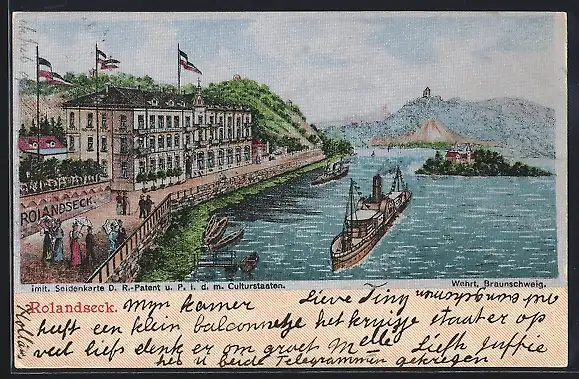 ROLANDSECK.
imit. Seidenkarte D. R.-Patent u. P. i. d. m. Culturstaaten.
Wehrt, Braunschweig.
Rolandseck. Myn kamer Lieve Tiny
heeft een klein balconnetje het kruisje staat er op
veel liefs denk er om groet Melle Liefh Juffie
heb u beide Telegrammen gekregen